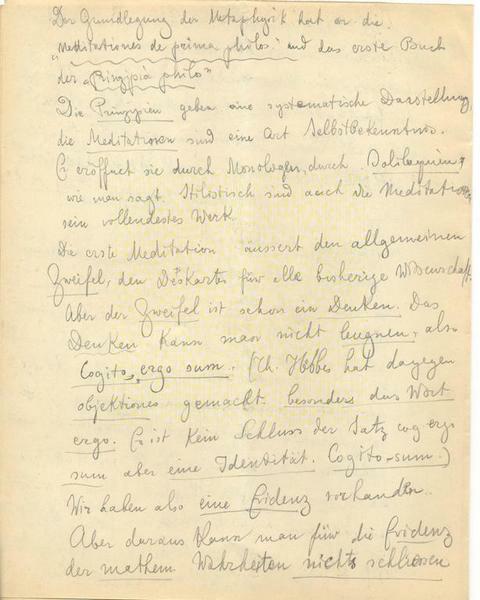 Der Grundlegung der Metaphysik hat er die
"Meditationes de prima philos" und das erste Buch
der "Prinzipia philo"
Die Prinzipien geben eine systematische Darstellung,
die Meditationen sind eine Art Selbstbekenntnis.
Er eröffnet sie durch Monologen, durch
wie man sagt. Stilistisch sind auch die Meditationen
sein vollendestes Werk.
Die erste Meditation äussert den allgemeinen
Zweifel, den Deskartes für alle bisherige Wissenschaft.
Aber der Zweifel ist schon ein Denken. Das
Denken kann man nicht leugnen, also
Cogito, ergo sum. (Th. Hobbes hat dagegen
objektiones gemacht besonders das Wort
ergo. Es ist kein Schluss der Satz cog ergo
sum aber eine Identität. Cogito-sum.)
Wir haben also eine Evidenz vorhanden.
Aber daraus kann man für die Evidenz
der mathem Wahrheiten nichts schliessen